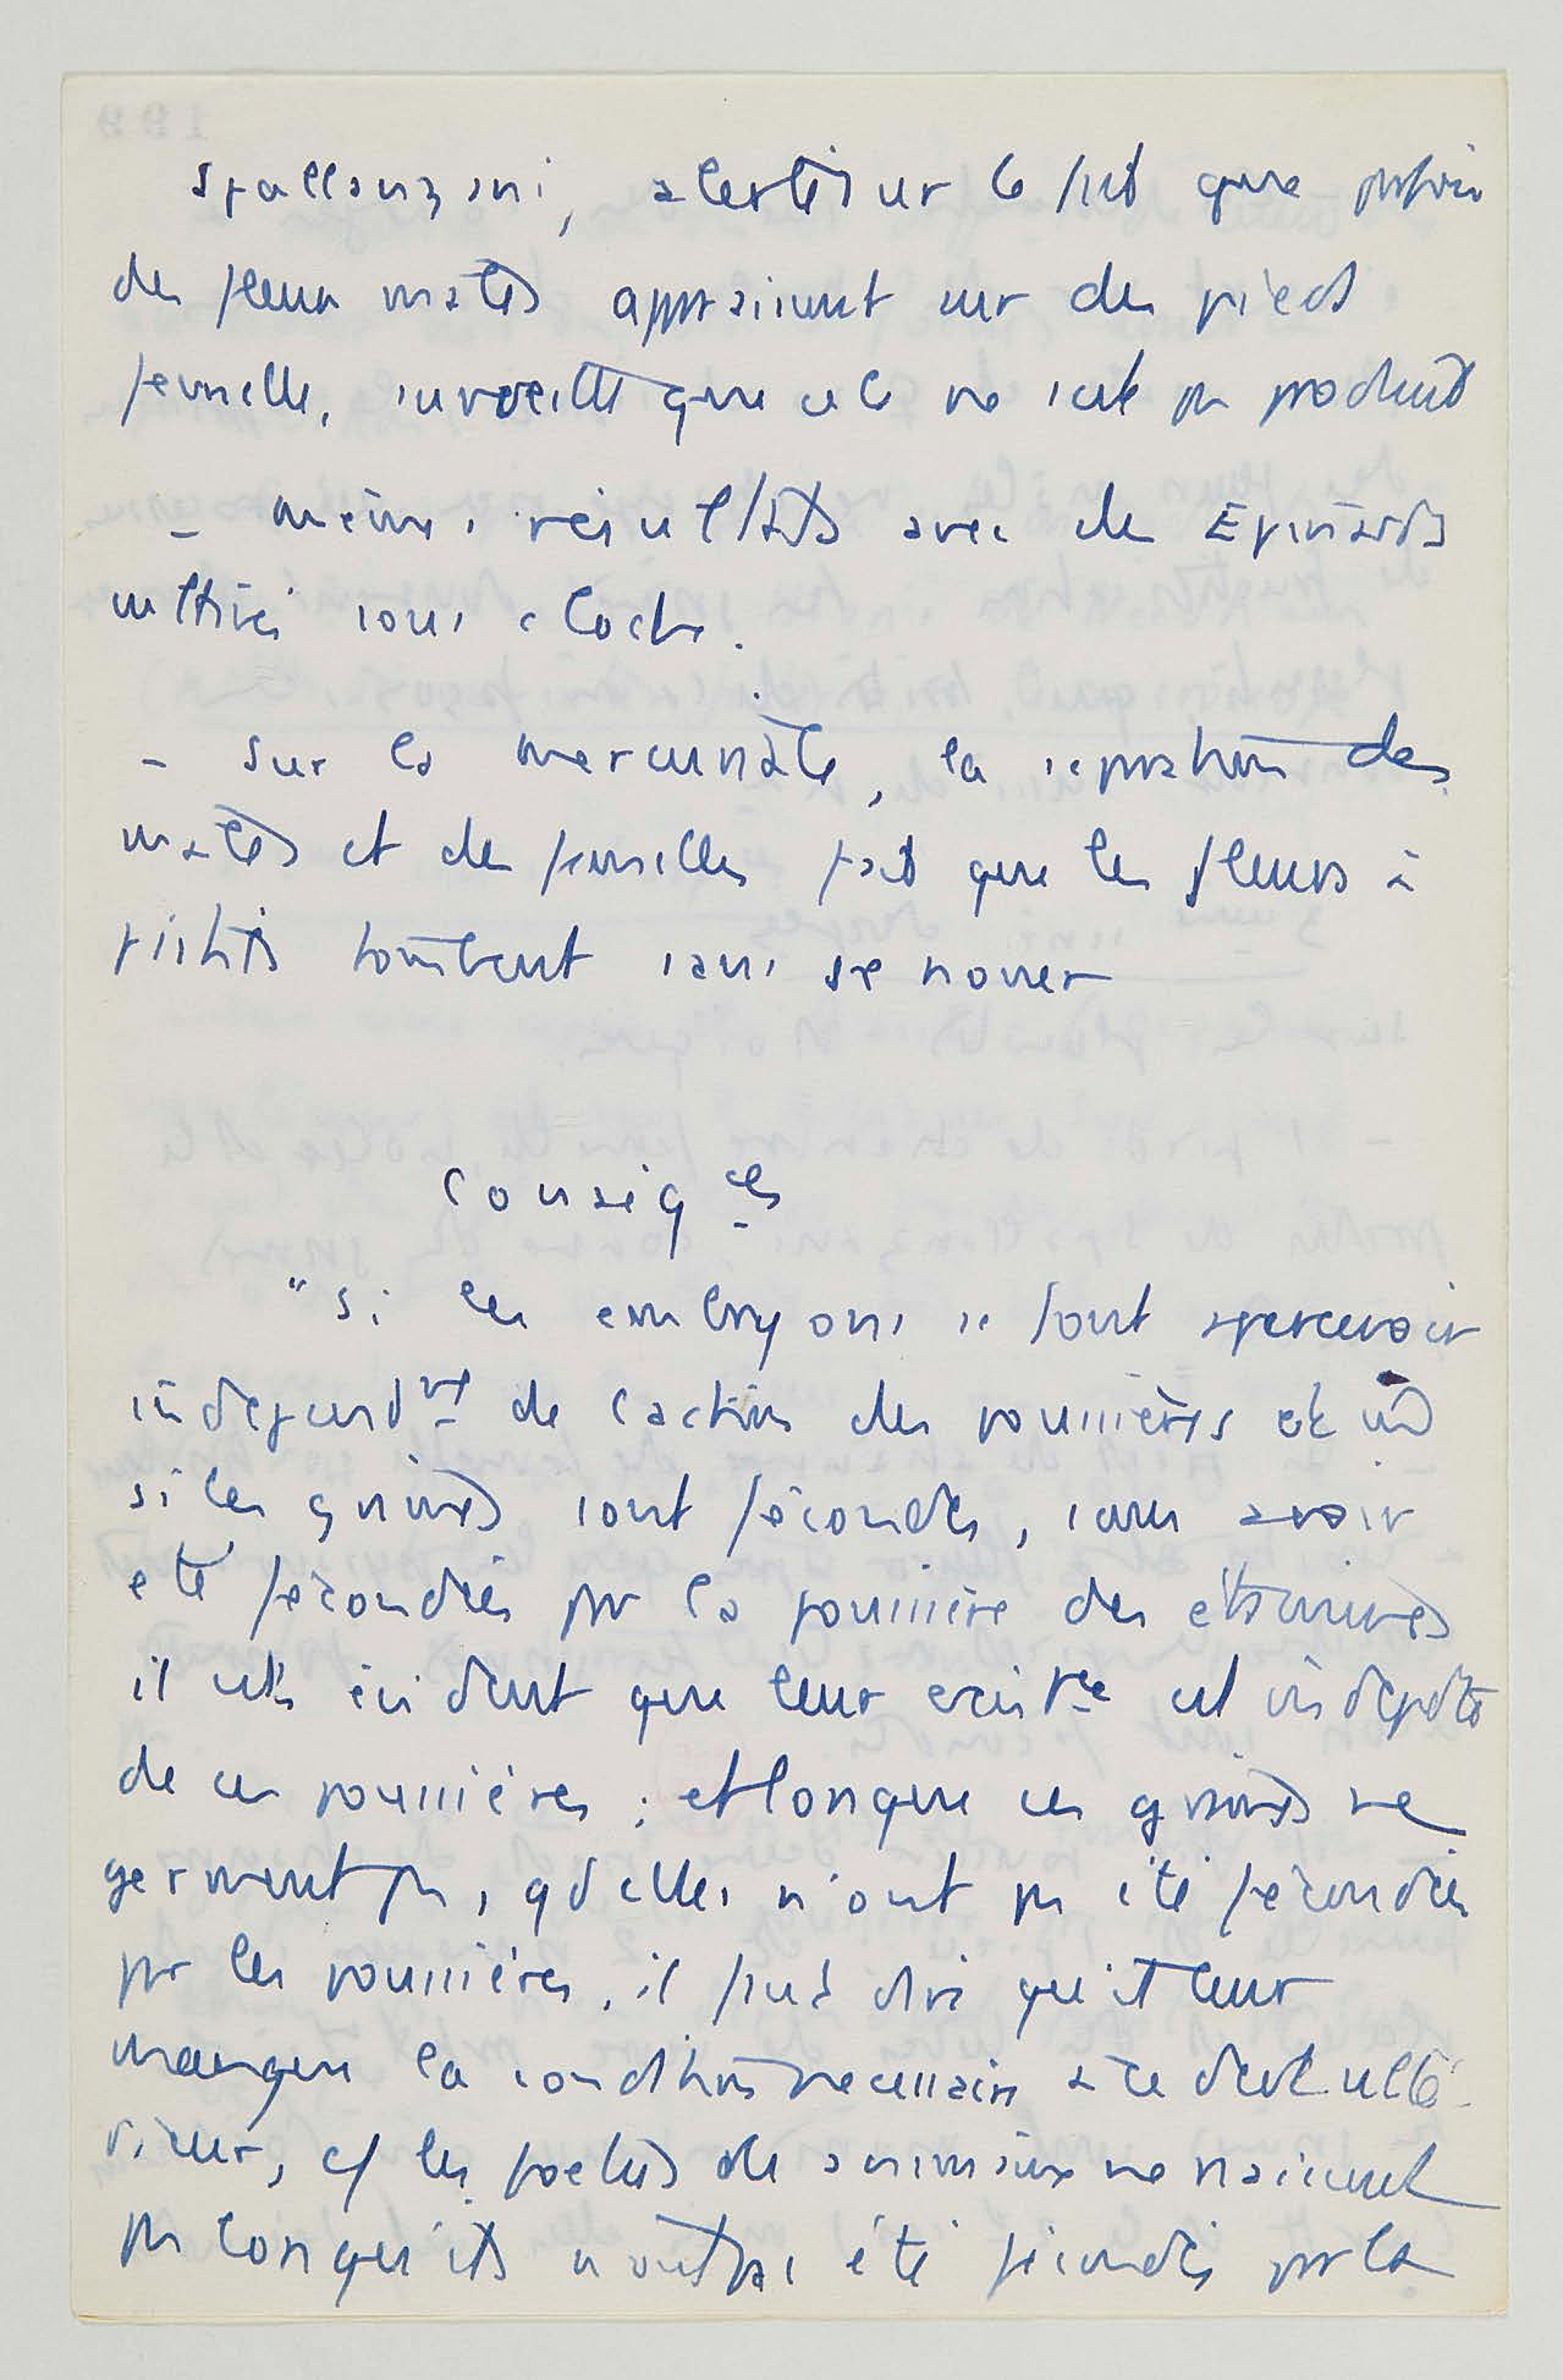 Spallanzani, alerté sur le fait que parfois
des fleurs mâles apparaissent sur des pieds
femelles, surveille que cela ne s'est pas produit
- mêmes résultats avec des Épinards
cultivés sous cloche.
- Sur la mercuriale, la séparation des
mâles et des femelles fait que les fleurs à
pistils tombent sans se nouer
Conséq ces
"Si les embryons se font apercevoir
indépend mt de l'action des poussières et
si les graines sont fécondes, sans avoir
été fécondées par la poussière des étamines
il est évident que leur exist ce est indépdte
de ces poussières ; et lorsque ces graines ne
germent pas, qd elles n'ont pas été fécondées
par les poussières, il faut dire qu'il leur
manque la condition nécessaire à ce devt ulté-
rieur, cf les foetus des animaux ne naissent
pas lorsqu'ils n'ont pas été fécondés par la